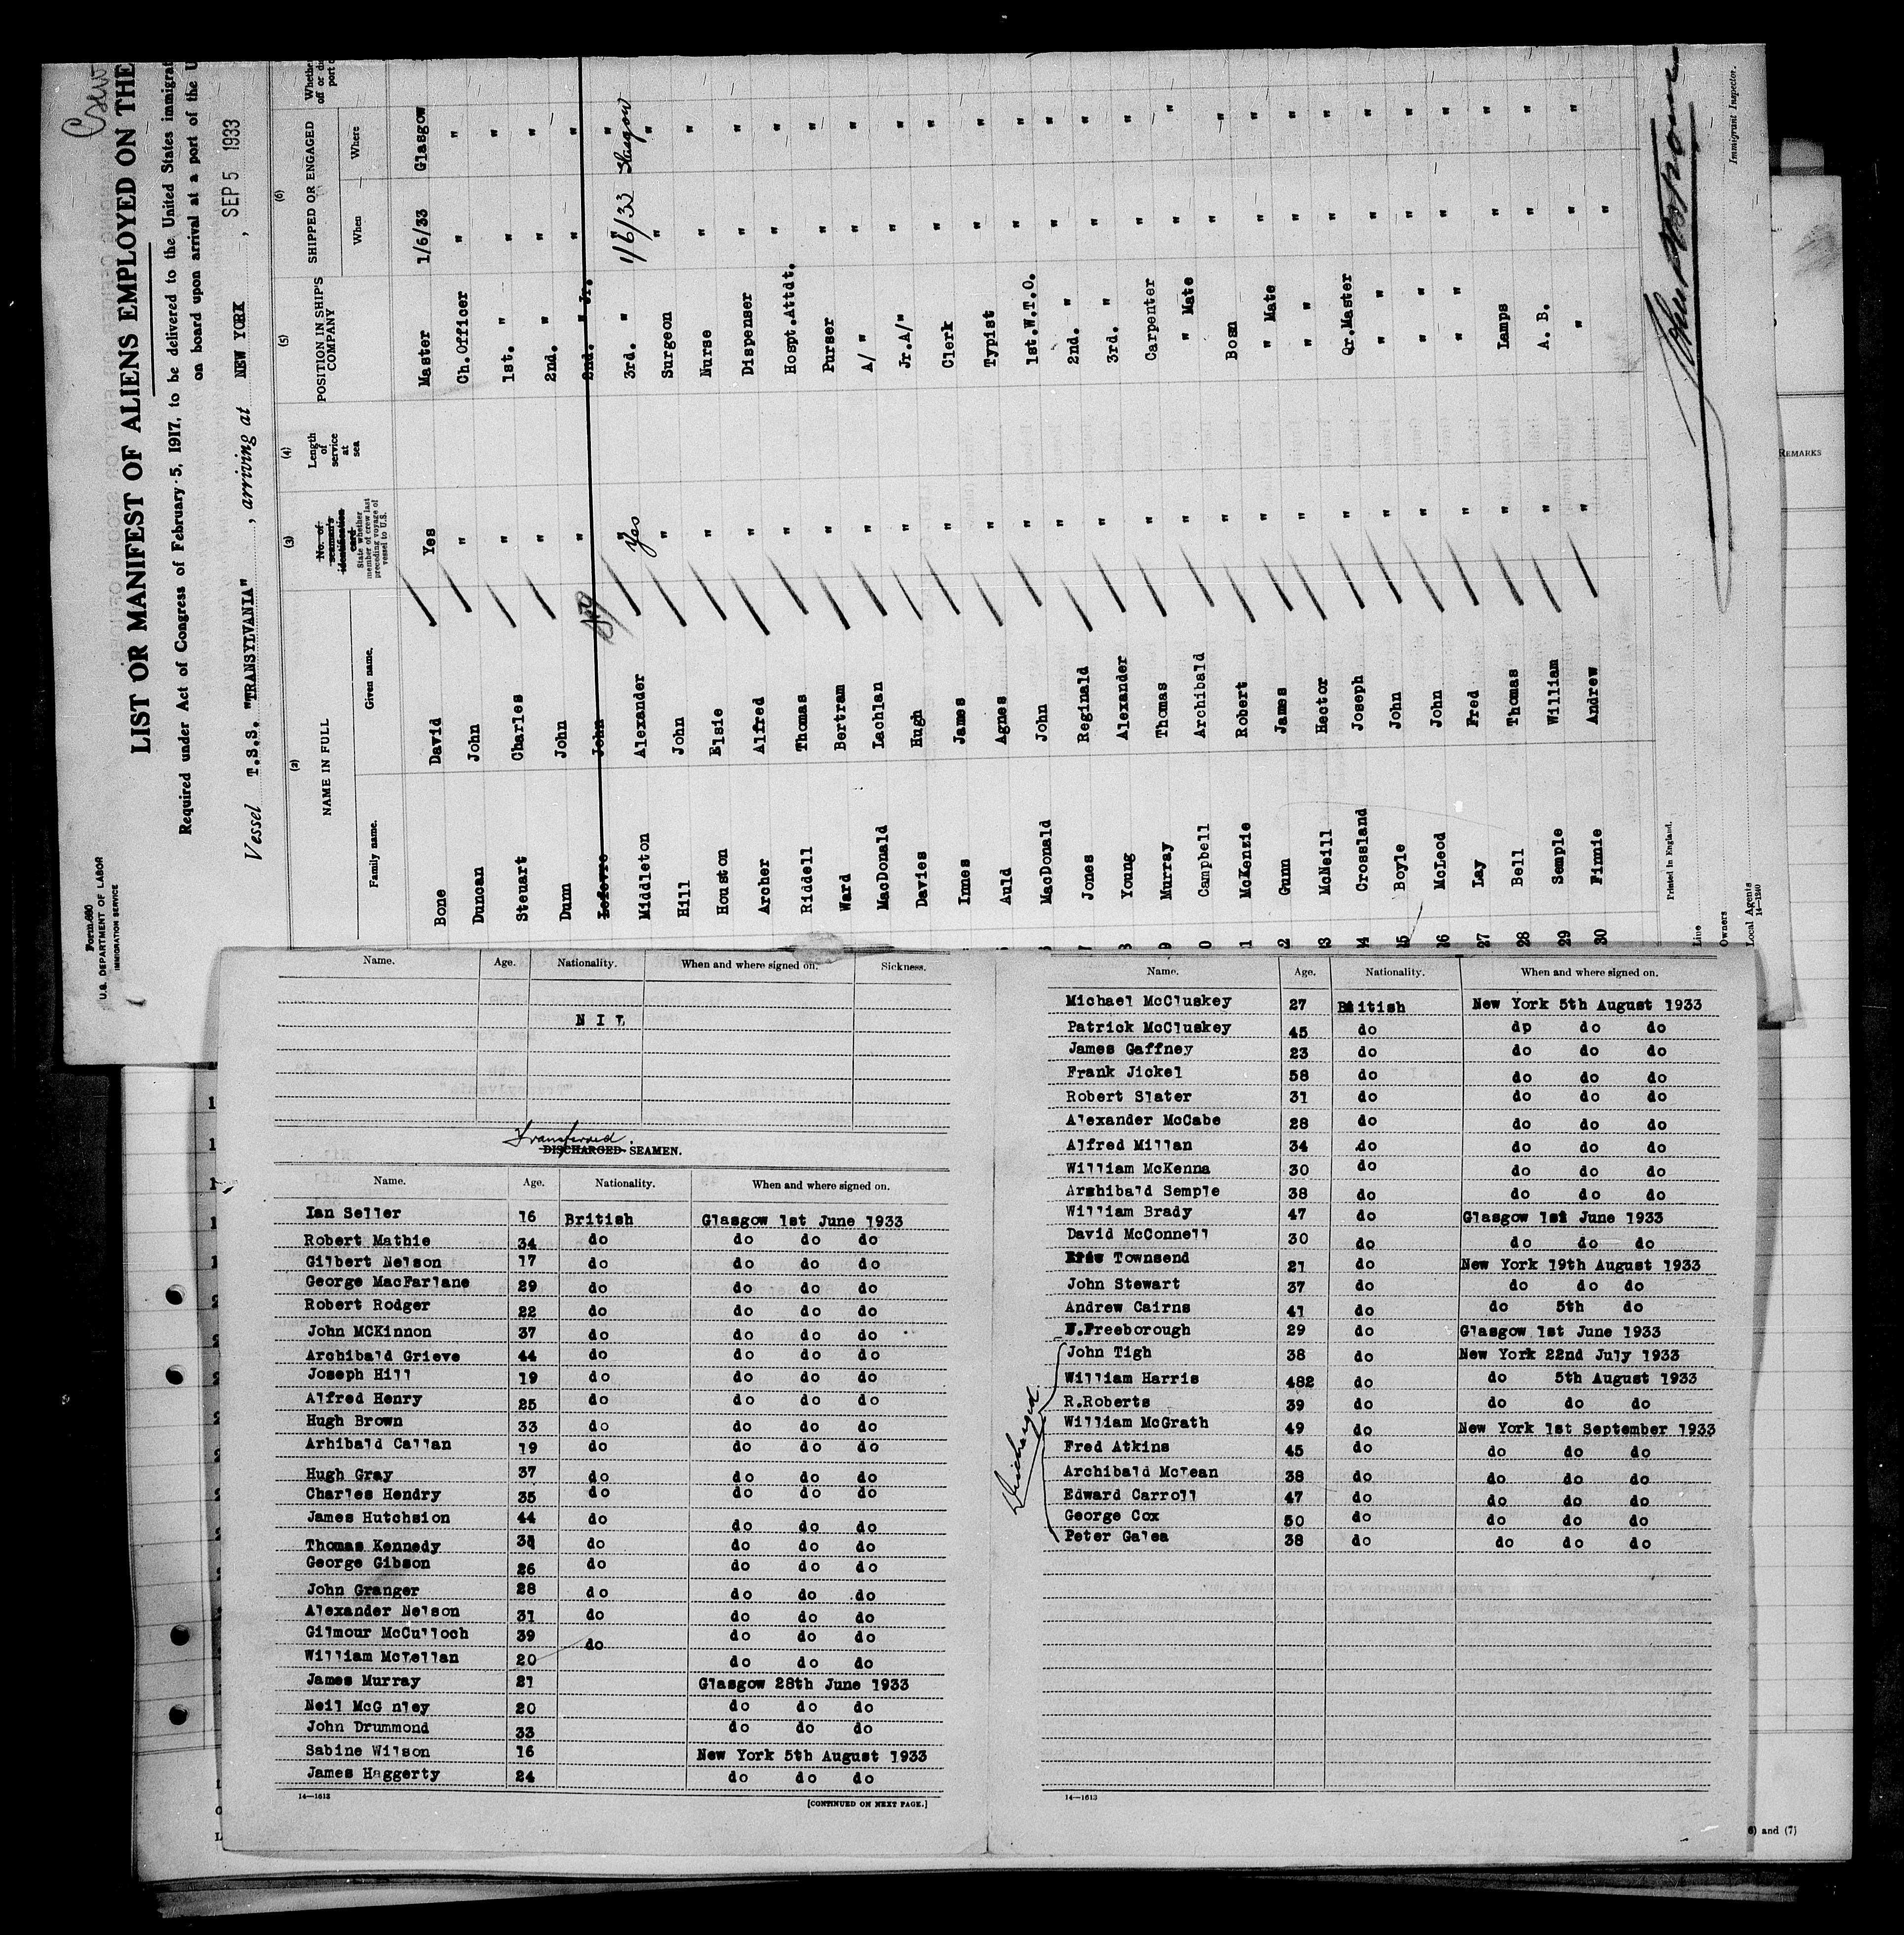 Crew
Form 680
U.S. DEPARTMENT OF LABOR
IMMIGRATION SERVICE
LIST OR MANIFEST OF ALIENS EMPLOYED ON THE
Required under Act of Congress of February 5, 1917, to be delivered to the United States immigrat
on board upon arrival at a port of the U
Vessel T.S.S. "TRANSYLVANIA", arriving at NEW YORK, SEP 5 1933
(2) (3) (4) (5) (6)
NAME IN FULL No. of seaman's identification card State whether member of crew last preceding voyage of vessel to U.S. Length of service at sea POSITION IN SHIP'S COMPANY SHIPPED OR ENGAGED Whethe
off or di
port o
Family name. Given name. When Where
Bone David Yes Master 1/6/33 Glasgow
Duncan John " Ch.Officer " "
Steuart Charles " 1st. " " "
Dunn John " 2nd. " " "
Lefevre John " 2nd. " Jr. " "
Middleton Alexander " Yes 3rd. " " 1/6/33 " Glasgow
Hill John " Surgeon " "
Houston Elsie " Nurse " "
Archer Alfred " Dispenser " "
Riddell Thomas " Hospt.Attdt. " "
Ward Bertram " Purser " "
MacDonald Lachlan " A/ " " "
Davies Hugh " Jr.A/" " "
Innes James " Clerk " "
Auld Agnes " Typist " "
MacDonald John " 1st.W.T.O. " "
Jones Reginald " 2nd. " " "
8 Young Alexander " 3rd. " " "
9 Murray Thomas " Carpenter " "
0 Campbell Archibald " " Mate " "
1 McKenzie Robert " Bosn " "
22 Gunn James " " Mate " "
23 McNeill Hector " " " " "
24 Crossland Joseph " Qr.Master " "
25 Boyle John " " " " "
26 McLeod John " " " " "
27 Lay Fred " " " " "
28 Bell Thomas " Lamps " "
29 Semple William " A. B. " "
30 Finnie Andrew " " " "
Printed in England.
Line
Owners
Local Agents
14—1240
Immigrant Inspector.
REMARKS
6) and (7)
Name. Age. Nationality. When and where signed on. Sickness.
N I L
Transferred.
DISCHARGED SEAMEN.
Name. Age. Nationality. When and where signed on.
Ian Seller 16 British Glasgow 1st June 1933
Robert Mathie 34 do do do do
Gilbert Nelson 17 do do do do
George MacFarlane 29 do do do do
Robert Rodger 22 do do do do
John MCKinnon 37 do do do do
Archibald Grieve 44 do do do do
Joseph Hill 19 do do do do
Alfred Henry 25 do do do do
Hugh Brown 33 do do do do
Arhibald Callan 19 do do do do
Hugh Gray 37 do do do do
Charles Hendry 35 do do do do
James Hutchsion 44 do do do do
Thomas Kennedy do do do do
George Gibson 26 do do do do
John Granger 28 do do do do
Alexander Nelson 31 do do do do
Gilmour McCulloch 39 do do do do
William McLellan 20 do do do
James Murray 21 Glasgow 28th June 1933
Neil McG nley 20 do do do
John Drummond 33 do do do
Sabine Wilson 16 New York 5th August 1933
James Haggerty 24 do do do
14—1613 [CONTINUED ON NEXT PAGE.]
Name. Age. Nationality. When and where signed on.
Michael McCluskey 27 British New York 5th August 1933
Patrick McCluskey 45 do dp do do
James Gaffney 23 do do do do
Frank Jickel 58 do do do do
Robert Slater 31 do do do do
Alexander McCabe 28 do do do do
Alfred Millan 34 do do do do
William McKenna 30 do do do do
Archibald Semple 38 do do do do
William Brady 47 do Glasgow 1st June 1933
David McConnell 30 do do do do
Townsend 21 do New York 19th August 1933
John Stewart 37 do do do do
Andrew Cairns 41 do do 5th do
Freeborough 29 do Glasgow 1st June 1933
Discharged
John Tigh 38 do New York 22nd July 1933
William Harris 482 do do 5th August 1933
R.Roberts 39 do do do do
William McGrath 49 do New York 1st September 1933
Fred Atkins 45 do do do do
Archibald McLean 38 do do do do
Edward Carroll 47 do do do do
George Cox 50 do do do do
Peter Galea 38 do do do do
14—1613